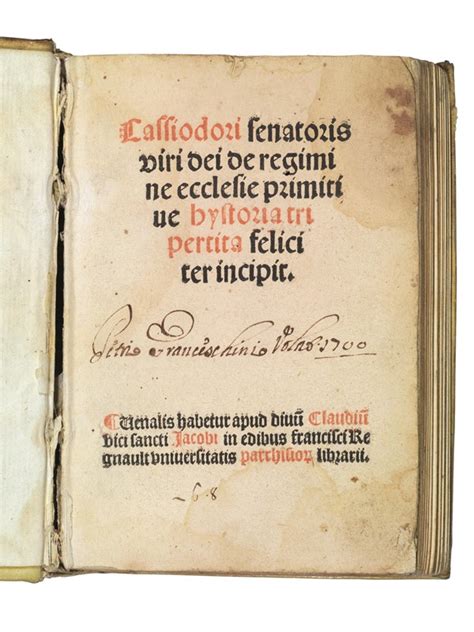 Cassiodori senatoris
viri dei de regimi
ne ecclesie primiti
ue hystoria tri
pertita felici
ter incipit.
1700
¶ Uenalis habetur apud diuū Claudiū
vici sancti Jacobi in edibus francisci Re
gnault vniuersitatis parrhisioꝝ librarii.
68